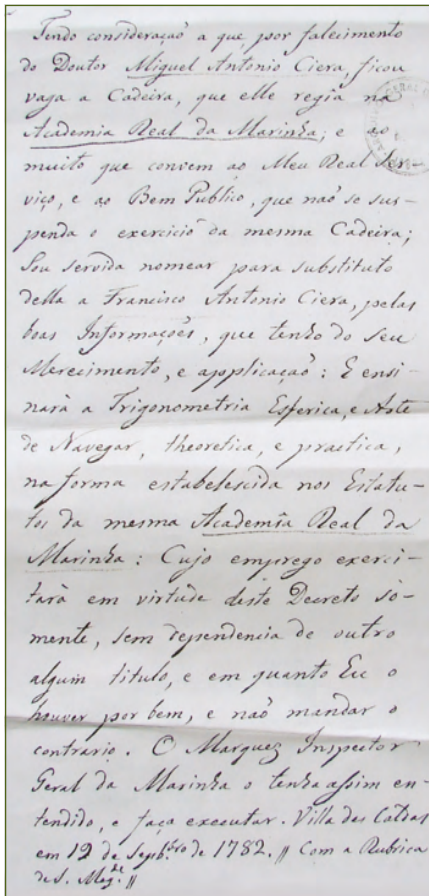 Tendo consideraçaõ a que por falecimento
do Doutor Miguel Antonio Ciera, ficou
vaga a Cadeira, que elle regia na
Academia Real da Marinha; e ao
muito que convem ao Meu Real Ser-
viço, e ao Bem Publico, que naõ se sus-
penda o exercicio da mesma Cadeira;
Sou servida nomear para substituto
della a Francisco Antonio Ciera, pelas
boas Informações, que tenho do seu
Merecimento, e applicaçaõ: E ensi-
narà a Trigonometria Esferica, e Arte
de Navegar, theoretica, e practica,
na forma estabelescida nos Estatu-
tos da mesma Academia Real da
Marinha: Cujo emprego exerci-
tarà em virtude deste Decreto sò-
mente, sem dependencia de outro
algum titulo, e em quanto Eu o
houver por bem, e naõ mandar o
contrario. O Marquez Inspector
Geral da Marinha o tenha assim en-
tendido, e faça executar. Villa das Caldas
em 12 de Septbro de 1782. // Com a Rubrica
de S. Magde //